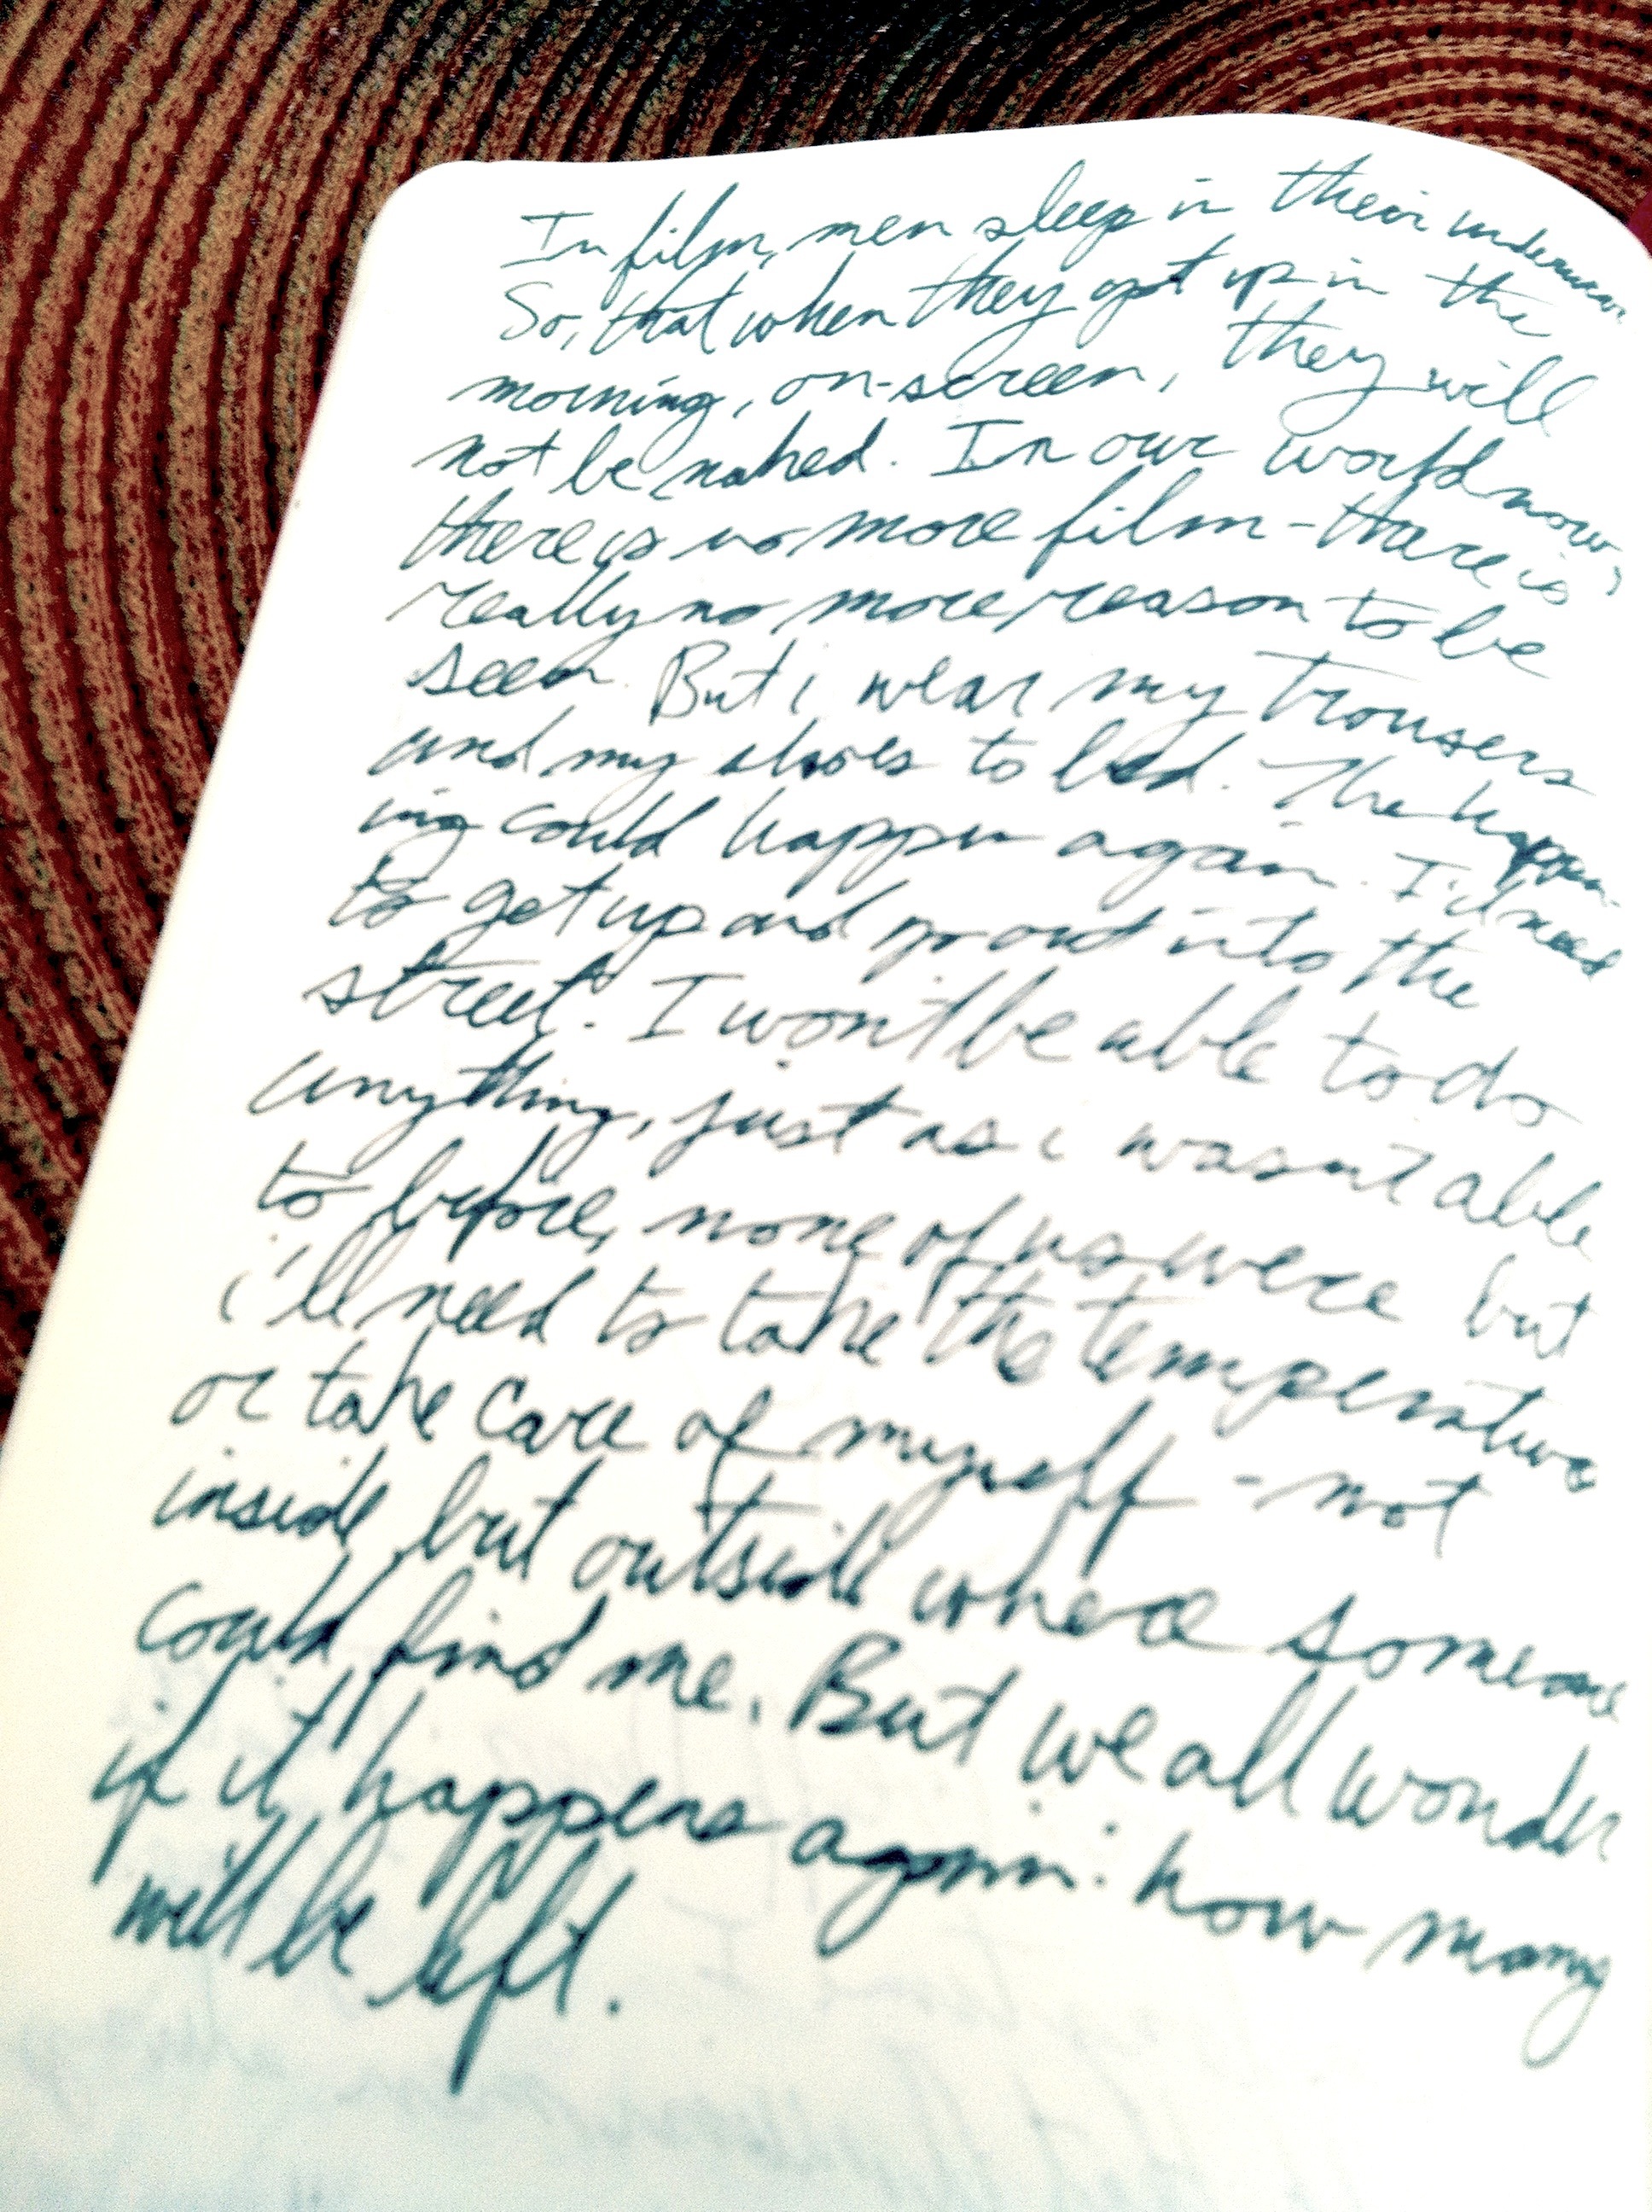 In film, men sleep in their underwear
So, that when they get up in the
morning, on-screen, they will
not be naked. In our world now,
there is no more film - there is
really no more reason to be
seen. But i wear my trousers
and my shoes to bed. The happen-
ing could happen again. I'd need
to get up and go out into the
street. I won't be able to do
anything, just as i wasn't able
to before, none of us were but
i'll need to take the temperature
or take care of myself - not
inside but outside where someone
could find me. But we all wonder
if it happens again: how many
will be left.